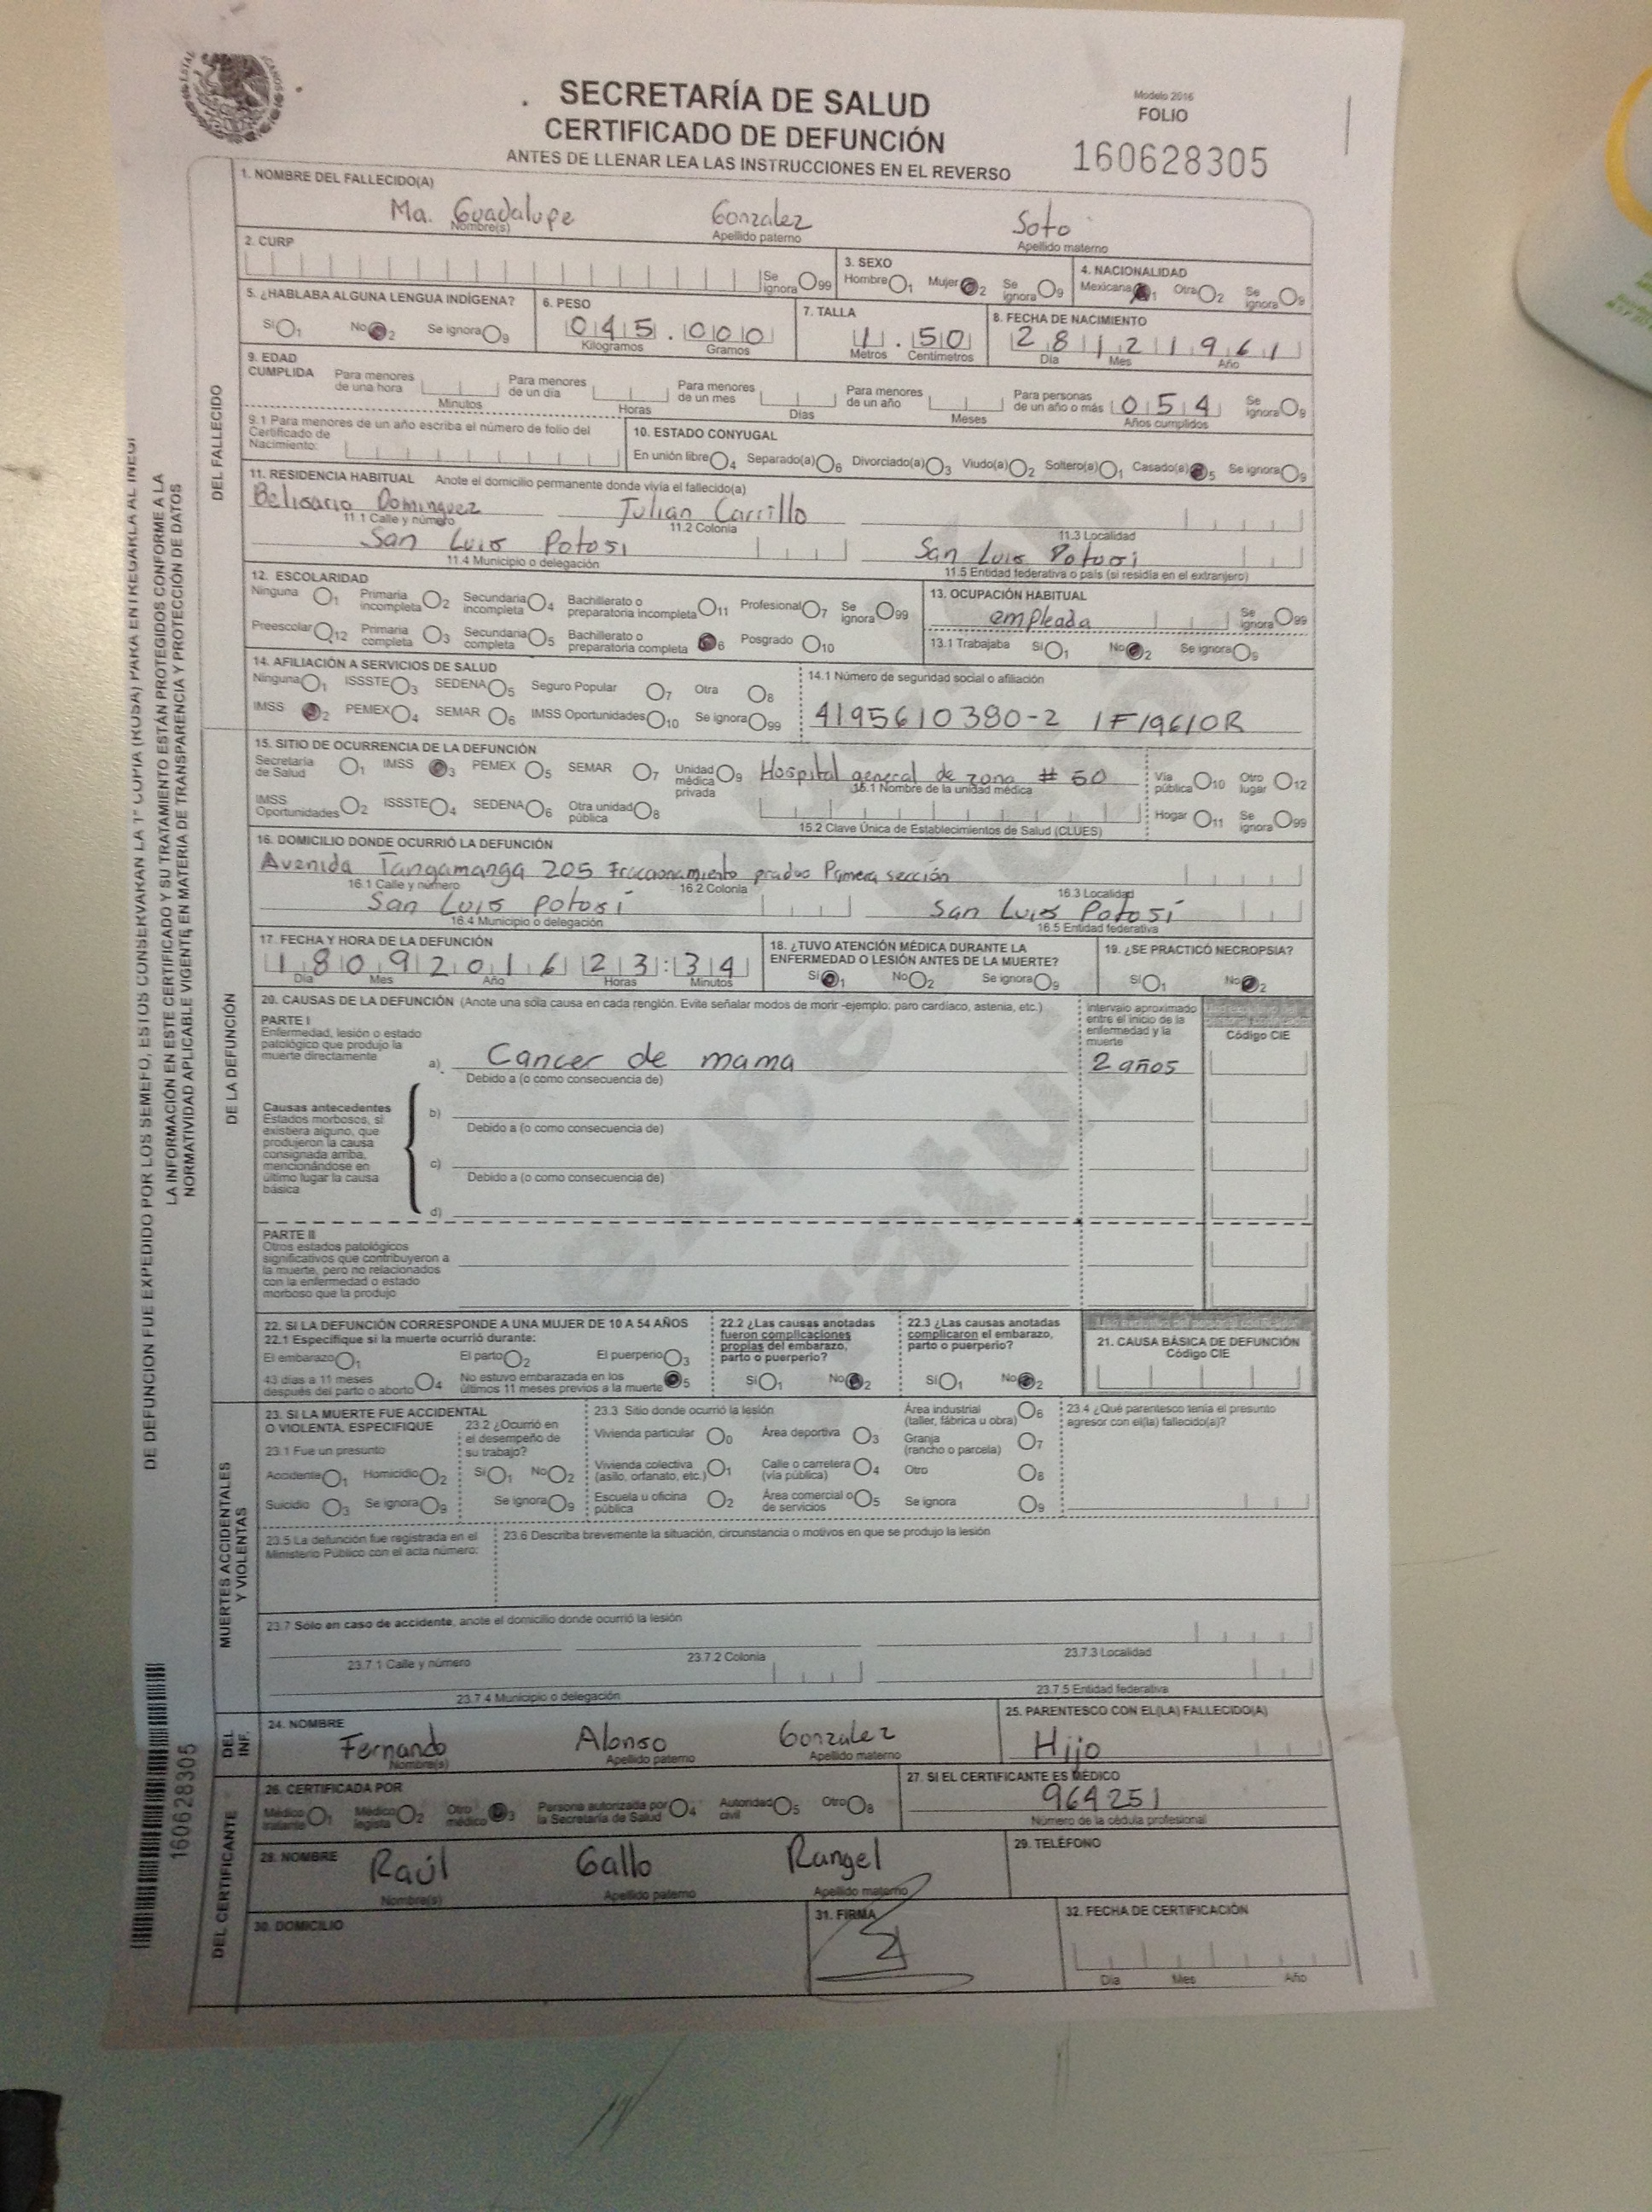 SECRETARÍA DE SALUD
CERTIFICADO DE DEFUNCIÓN
ANTES DE LLENAR LEA LAS INSTRUCCIONES EN EL REVERSO
Modelo 2016
FOLIO
160628305
1. NOMBRE DEL FALLECIDO(A)
Ma. Guadalupe Gonzalez Soto
Nombre(s) Apellido paterno Apellido materno
2. CURP Se ignora 99
3. SEXO
Hombre 1 Mujer 2 Se ignora 9
4. NACIONALIDAD
Mexicana 1 Otra 2 Se ignora 9
5. ¿HABLABA ALGUNA LENGUA INDÍGENA?
Sí 1 No 2 Se ignora 9
6. PESO
045.000
Kilogramos Gramos
7. TALLA
1.50
Metros Centímetros
8. FECHA DE NACIMIENTO
28 12 1961
Día Mes Año
9. EDAD CUMPLIDA
Para menores de una hora Minutos
Para menores de un día Horas
Para menores de un mes Días
Para menores de un año Meses
Para personas de un año o más 054 Años cumplidos
Se ignora 9
9.1 Para menores de un año escriba el número de folio del Certificado de Nacimiento:
10. ESTADO CONYUGAL
En unión libre 4 Separado(a) 6 Divorciado(a) 3 Viudo(a) 2 Soltero(a) 1 Casado(a) 5 Se ignora 9
11. RESIDENCIA HABITUAL Anote el domicilio permanente donde vivía el fallecido(a)
Belisario Dominguez Julian Carrillo
11.1 Calle y número 11.2 Colonia 11.3 Localidad
San Luis Potosi San Luis Potosi
11.4 Municipio o delegación 11.5 Entidad federativa o país (si residía en el extranjero)
12. ESCOLARIDAD
Ninguna 1 Primaria incompleta 2 Secundaria incompleta 4 Bachillerato o preparatoria incompleta 11 Profesional 7 Se ignora 99
Preescolar 12 Primaria completa 3 Secundaria completa 5 Bachillerato o preparatoria completa 6 Posgrado 10
13. OCUPACIÓN HABITUAL
empleada Se ignora 99
13.1 Trabajaba Sí 1 No 2 Se ignora 9
14. AFILIACIÓN A SERVICIOS DE SALUD
Ninguna 1 ISSSTE 3 SEDENA 5 Seguro Popular 7 Otra 8
IMSS 2 PEMEX 4 SEMAR 6 IMSS Oportunidades 10 Se ignora 99
14.1 Número de seguridad social o afiliación
4195610380-2 1F1961OR
15. SITIO DE OCURRENCIA DE LA DEFUNCIÓN
Secretaría de Salud 1 IMSS 3 PEMEX 5 SEMAR 7 Unidad médica privada 9
IMSS Oportunidades 2 ISSSTE 4 SEDENA 6 Otra unidad pública 8
Hospital general de zona # 50
15.1 Nombre de la unidad médica
15.2 Clave Única de Establecimientos de Salud (CLUES)
Vía pública 10 Otro lugar 12
Hogar 11 Se ignora 99
16. DOMICILIO DONDE OCURRIÓ LA DEFUNCIÓN
Avenida Tangamanga 205 Fraccionamiento prados Primera sección
16.1 Calle y número 16.2 Colonia 16.3 Localidad
San Luis Potosí San Luis Potosí
16.4 Municipio o delegación 16.5 Entidad federativa
17. FECHA Y HORA DE LA DEFUNCIÓN
18 09 2016 23:34
Día Mes Año Horas Minutos
18. ¿TUVO ATENCIÓN MÉDICA DURANTE LA ENFERMEDAD O LESIÓN ANTES DE LA MUERTE?
Sí 1 No 2 Se ignora 9
19. ¿SE PRACTICÓ NECROPSIA?
Sí 1 No 2
20. CAUSAS DE LA DEFUNCIÓN (Anote una sola causa en cada renglón. Evite señalar modos de morir -ejemplo: paro cardíaco, astenia, etc.)
Intervalo aproximado entre el inicio de la enfermedad y la muerte
Código CIE
PARTE I
Enfermedad, lesión o estado patológico que produjo la muerte directamente
a) Cancer de mama 2 años
Debido a (o como consecuencia de)
Causas antecedentes
Estados morbosos, si existiera alguno, que produjeron la causa consignada arriba, mencionándose en último lugar la causa básica
b)
Debido a (o como consecuencia de)
c)
Debido a (o como consecuencia de)
d)
PARTE II
Otros estados patológicos significativos que contribuyeron a la muerte, pero no relacionados con la enfermedad o estado morboso que la produjo
22. SI LA DEFUNCIÓN CORRESPONDE A UNA MUJER DE 10 A 54 AÑOS
22.1 Especifique si la muerte ocurrió durante:
El embarazo 1 El parto 2 El puerperio 3
43 días a 11 meses después del parto o aborto 4 No estuvo embarazada en los últimos 11 meses previos a la muerte 5
22.2 ¿Las causas anotadas fueron complicaciones propias del embarazo, parto o puerperio?
Sí 1 No 2
22.3 ¿Las causas anotadas complicaron el embarazo, parto o puerperio?
Sí 1 No 2
21. CAUSA BÁSICA DE DEFUNCIÓN
Código CIE
23. SI LA MUERTE FUE ACCIDENTAL O VIOLENTA, ESPECIFIQUE
23.1 Fue un presunto
Accidente 1 Homicidio 2
Suicidio 3 Se ignora 9
23.2 ¿Ocurrió en el desempeño de su trabajo?
Sí 1 No 2
Se ignora 9
23.3 Sitio donde ocurrió la lesión
Vivienda particular 0 Área deportiva 3 Área industrial (taller, fábrica u obra) 6
Vivienda colectiva (asilo, orfanato, etc.) 1 Calle o carretera (vía pública) 4 Granja (rancho o parcela) 7
Escuela u oficina pública 2 Área comercial o de servicios 5 Otro 8
Se ignora 9
23.4 ¿Qué parentesco tenía el presunto agresor con el(la) fallecido(a)?
23.5 La defunción fue registrada en el Ministerio Público con el acta número:
23.6 Describa brevemente la situación, circunstancia o motivos en que se produjo la lesión
23.7 Sólo en caso de accidente, anote el domicilio donde ocurrió la lesión
23.7.1 Calle y número 23.7.2 Colonia 23.7.3 Localidad
23.7.4 Municipio o delegación 23.7.5 Entidad federativa
24. NOMBRE
Fernando Alonso Gonzalez
Nombre(s) Apellido paterno Apellido materno
25. PARENTESCO CON EL(LA) FALLECIDO(A)
Hijo
26. CERTIFICADA POR
Médico tratante 1 Médico legista 2 Otro médico 3 Persona autorizada por la Secretaría de Salud 4 Autoridad civil 5 Otro 8
27. SI EL CERTIFICANTE ES MÉDICO
964251
Número de la cédula profesional
28. NOMBRE
Raúl Gallo Rangel
Nombre(s) Apellido paterno Apellido materno
29. TELÉFONO
30. DOMICILIO
31. FIRMA
32. FECHA DE CERTIFICACIÓN
Día Mes Año
DEL FALLECIDO
DE LA DEFUNCIÓN
MUERTES ACCIDENTALES Y VIOLENTAS
DEL INF.
DEL CERTIFICANTE
LA INFORMACIÓN EN ESTE CERTIFICADO Y SU TRATAMIENTO ESTÁN PROTEGIDOS CONFORME A LA
NORMATIVIDAD APLICABLE VIGENTE, EN MATERIA DE TRANSPARENCIA Y PROTECCIÓN DE DATOS
160628305